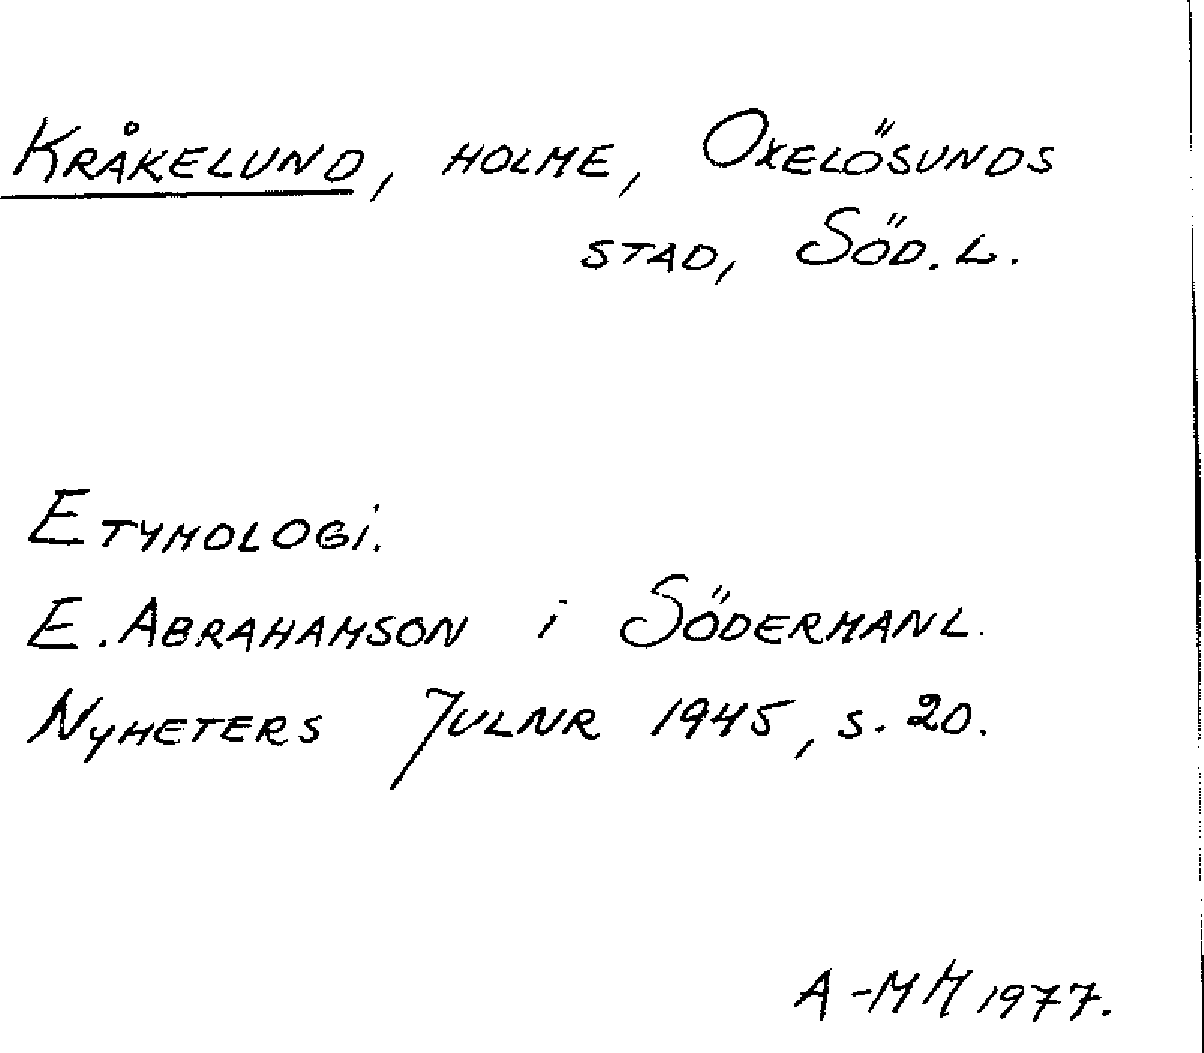 KRÅKELUND, HOLME, OXELÖSUNDS
STAD, SÖD. L.
ETYMOLOGI.
E. ABRAHAMSON i SÖDERMANL.
NYHETERS JULNR 1945, S. 20.
A-MH 1977.